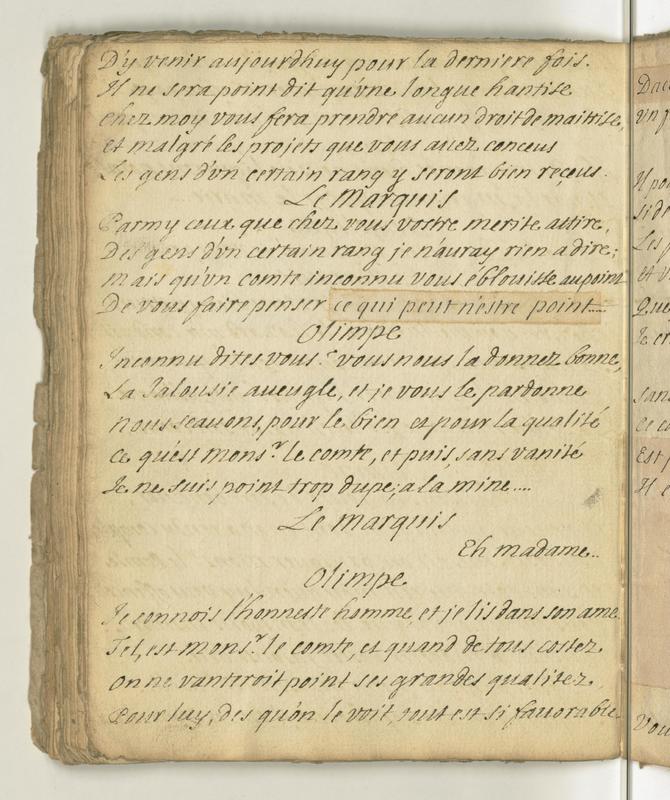 D'y venir aujourdhuy pour la derniere fois.
Il ne sera point dit qu'vne longue hantise
chez moy vous fera prendre aucun droit de maitrise,
et malgré les projets que vous auez conceus
Les gens d'vn certain rang y seront bien reçeus.
Le Marquis
Parmy ceux que chez vous vostre merite attire,
Des gens d'vn certain rang je n'auray rien a dire;
mais qu'vn comte inconnu vous éblouisse au point
De vous faire penser ce qui peut n'estre point....
Olimpe
Inconnu dites vous? vous nous la donnez bonne,
La Jalousie aueugle, et je vous le pardonne
nous scauons, pour le bien et pour la qualité
ce qu'est mons.r le comte, et puis, sans vanité
Je ne suis point trop dupe, a la mine....
Le marquis
Eh madame..
Olimpe
Je connois l'honneste homme, et je lis dans son ame.
Tel, est mons.r le comte, et quand de tous costez
on ne vanteroit point ses grandes qualitez,
Pour luy, des qu'on le voit, tout est si fauorable